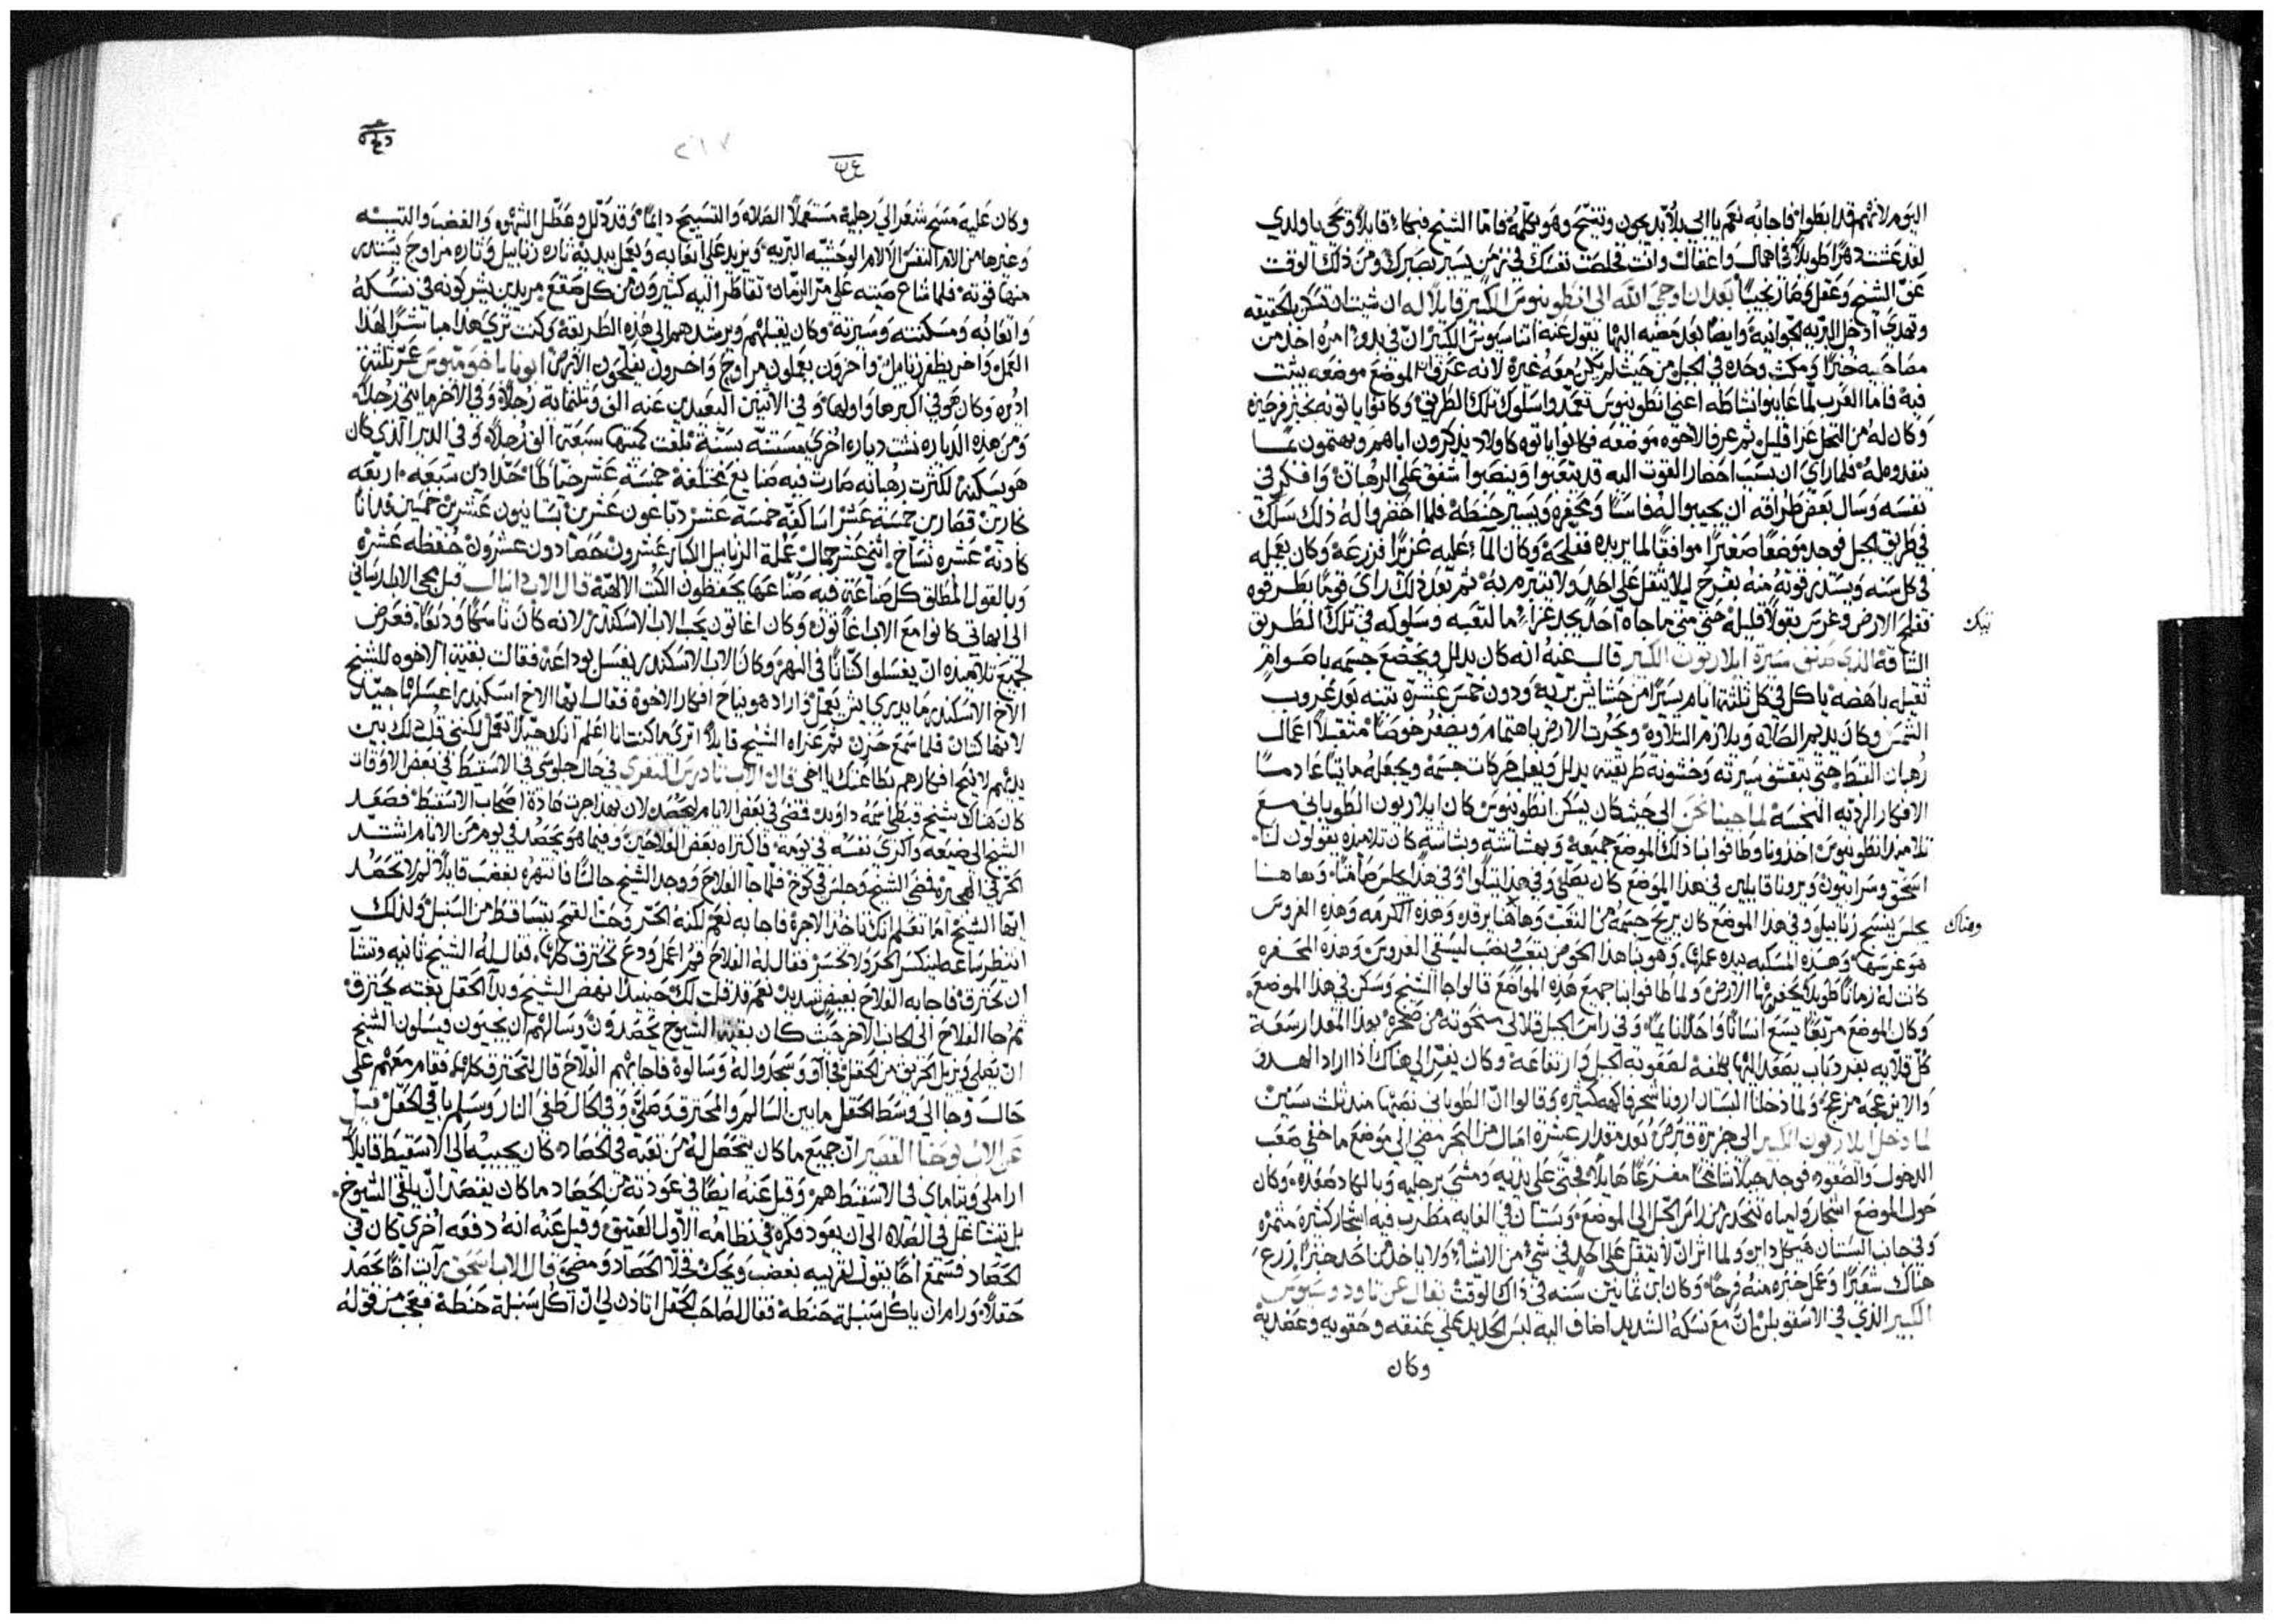 اليوم لانهم قد ابطوا فاجابه نعم يا ابي بلا بد يجون وتنيح وهو يكلمه فاما الشيخ فبكا قايلا ويحي يا ولدي
لقد عشت دهرا طويلا في اهمال واغفال وانت فخلصت نفسك في زمن يسير بصبرك ومن ذلك الوقت
عف الشيخ وعقل وصار نجيبا بعد ان اوحى الله الى انطونيوس الكبير قايلا له ان شيت ان تسكن بالحقيقه
وتهدى ادخل البريه الجوانيه وايضا بعد مضيه اليها يقول عنه اثناسيوس الكبير ان في بدو امره اخذ من
مصاحبيه خبزا ومكث وحده في الجبل من حيث لم يكن معه غيره لانه عرف الموضع موضعه يثبت
فيه فاما العرب لما عاينوا نشاطه اعني انطونيوس تعمدوا سلوك تلك الطريق وكانوا ياتونه بخبز فرحين
وكان له من النخل عزا قليل ثم عرفا الاخوه موضعه فكانوا ياتوه كاولاد يذكرون اباهم ويهتمون بما
ينفدوه له فلما راى ان بسبب احضار القوت اليه قد يتعبوا وينصبوا شفق على الرهبان وافكر في
نفسه وسال بعض طراقه ان يجيبوا له فاسا ومجفره ويسير حنطه فلما احضروا له ذلك سلك
في طريق الجبل فوجد موضعا صغيرا موافقا لما يريده ففلحه وكان الماء عليه غزيرا فزرعه وكان يعمله
في كل سنه ويستد قوته منه بفرح ليلا يثقل على احد ولا يتبرم به ثم بعد ذلك راى قوما يطرقوه
ففلح الارض وغرس بقولا قليله حتى متى ما جاه احد يجد عزاء ما لتعبه وسلوكه في تلك الطريق
الشاقه الذي صنف سيرة ايلاريون الكبير قال عنه انه كان يذلل ويخضع جسمه باصوام
ثقيله باهضه ياكل في كل ثلثة ايام يسيرا من حشايش بريه ودون خمس عشرة تينه بعد غروب
الشمس وكان يديم الصلاه ويلازم التلاوه ويحرث الارض باهتمام ويضفر خوصا متقبلا اعمال
رهبان القبط حتى بتعشق سيرته وخشونة طريقته يذلل ويعل حركات جسمه ويجعله مايتا عادما
الافكار الرديه النجسه لما جينا نحن الى حيث كان يسكن انطونيوس كان ايلاريون الطوباني مع
تلاميذ انطونيوس اخذونا وطافوا بنا ذلك الموضع جميعه وبهشاشه وبشاشه كان تلاميذه يقولون لنا
اسحق وسرابيون ويرونا قايلين في هذا الموضع كان يصلي وفي هذا يتلوا وفي هذا يجلس صامتا وهاهنا
يجلس ينسج زنابيل وفي هذا الموضع كان يريح جسمه من التعب وهاهنا يرقد وهذه الكرمه وهذه الغروس
هو غرسها وهذه المسكبه بيده عملها وهو بنا هذا الحوض بتعب ونصب ليسقي الغروس وهذه المجفره
كانت له زمانا طويلا يحفر بها الارض ولما طافوا بنا جميع هذه المواضع قالوا جا الشيخ وسكن في هذا الموضع
وكان الموضع مربعا يسع انسانا واحدا نايما وفي راس الجبل قلالي منحوته من صخره بهذا المقدار سعة
كل قلايه بغير باب يصعد اليها بكلفه لصعوبة الجبل وارتفاعه وكان يفر الى هناك اذا اراد الهدو
والا يزعجه مزعج ولما دخلنا البستان ارونا شجر فاكهه كثيره وقالوا ان الطوباني نصبها منذ ثلث سنين
لما دخل ايلاريون الكبير الى جزيرة قبرص بعد مقدار عشرة اميال من البحر مضى الى موضع ما خفي صعب
الدخول والصعود فوجد جبلا شامخا مفزعا هايلا فجثى على يديه ومشى برجليه وبالكاد صعده وكان
حول الموضع اشجار ومياه تنحدر من راس الجبل الى الموضع وبستان في الغايه مطرب فيه اشجار كثيره مثمره
وفي جانب البستان هيكل داير ولما اثر ان لا يثقل على احد في شي من الاشيا ولا ياخذ من احد خبزا زرع
هناك شعيرا وعمل خبزه منه فرحا وكان ابن ثمانين سنه في ذاك الوقت نقال عن ثاودوسيوس
الكبير الذي في الاسقوبلس ان مع نسكه الشديد اضاف اليه لبس الحديد على عنقه وحقويه وعضديه
وكان
تيك
وهناك
وكان عليه مسح شعر الى رجليه مستعملا الصلاه والتسبيح دايما وقد ذلل وعطل الشهوه والغضب والتيه
وغيرها من الام النفس الالام الوحشيه البريه ويزيد على اتعابه ويعمل بيديه تاره زنابيل وتاره مراوح يستد
منها قوته فلما شاع صيته على مر الزمان تقاطر اليه كثيرون من كل صقع مريدين يشركونه في نسكه
واتعابه ومسكنته وسيرته وكان يقبلهم ويرشدهم الى هذه الطريقه وكنت ترى هذا مباشرا لهذا
العمل واخر يظفر زنابيل واخرون يعملون مراوح واخرون يفلحون الارض ابونا باخوميوس عمر ثلثة
اديره وكان هو في اكبرها واولها وفي الاثنين البعيدين عنه الف وثلثماية رجلا وفي الاخر مايتي رجل
ومن هذه الدياره نشت دياره اخرى مستنه بسنة بلغت كميتها سبعة الف رجلا وفي الدير الذي كان
هو يسكنه لكثرت رهبانه صارت فيه صنايع مختلفه خمسة عشر خياطا حدادين سبعه اربعه
نجارين قصارين خمسة عشر اساكفه خمسة عشر دباغون عشرين بستانيون عشرين خمسين فدانا
كادنه عشره نساخ اثني عشر جمال عملة الزنابيل الكبار عشرون حصادون عشرون حفظه عشره
وبالقول المطلق كل صناعه فيه صناعها يحفظون الكتب الالهيه قال الاب دانيال قبل مجي الاب ارساني
الى ابهاتي كانوا مع الاب اغاثون وكان اغاثون يحب الاب الاسكندر لانه كان ناسكا وديعا فعرض
لجميع تلاميذه ان يغسلوا كتانا في النهر وكان الاب الاسكندر يغسل بوداعه فقالت بقية الاخوه للشيخ
الاخ الاسكندر ما يدري ايش يعمل واراد هو يناح افكار الاخوه فقال ايها الاخ اسكندر اغسلها جيدا
لانها كتان فلما سمع حزن ثم عزاه الشيخ قايلا اترى ما كنت انا اعلم انك جيدا تعمل لكنني قلت ذلك بين
يديهم لانيح افكارهم بطاعتك يا اخي قال الاب نادرس النغري في حال جلوسي في الاسقيط في بعض الاوقات
كان هناك شيخ قبطي اسمه داويد فمضى في بعض الايام ليحصد لان بهذا جرت عادة اصحاب الاسقيط فصعد
الشيخ الى ضيعه واكرى نفسه في يومه فاكتراه بعض الفلاحين وفيما هو يحصد في يوم من الايام اشتد
الحر في الهجيره فمضى الشيخ وجلس في كوخ فلما جا الفلاح ووجد الشيخ جالسا فانتهره بغضب قايلا لم لا تحصد
ايها الشيخ اما تعلم انك تاخذ الاجره فاجابه نعم لكنه الحر وحب القمح يتساقط من السنبل ولذلك
انتظر ساعه لينكسر الحر ولا تخسر فقال له الفلاح قم اعمل ودع تحترق كلها فقال له الشيخ ثانيه وتشا
ان تحترق فاجابه الفلاح بغيض شديد نعم قد قلت لك حينيذ نهض الشيخ وبدا الحقل بغته يحترق
ثم جا الفلاح الى الجانب الاخر حيث كان بقية الشيوخ يحصدون وسالهم ان يجيون ويسلون الشيخ
ان يصلي ويزيل الحريق من الحقل فجاوو وسجدوا له وسالوه فاجابهم الفلاح قال لتحترق كلها فقام معهم على
حال وجا الى وسط الحقل ما بين السالم والمحترق وصلى وفي الحال طفي النار وسلم باقي الحقل قيل
عن الاب يوحنا القصير ان جميع ما كان يتحصل له من تعبه في الحصاد كان يجيبه الى الاسقيط قايلا
اراملي ويتاماي في الاسقيط هم وقيل عنه ايضا في عودته من الحصاد ما كان يقصد ان يلقي الشيوخ
بل يتشاغل في الصلاه الى ان يعود فكره في نظامه الاول العتيق وقيل عنه انه دفعه اخرى كان في
الحصاد فسمع اخا يقول لقريبه بغضب ويحك فخلا الحصاد ومضى قال الاب اسحق رآت اخا يحصد
حقلا ورام ان ياكل سنبلة حنطه فقال لصاحب الحقل اتاذن لي ان اكل سنبلة حنطه فعجب من قوله